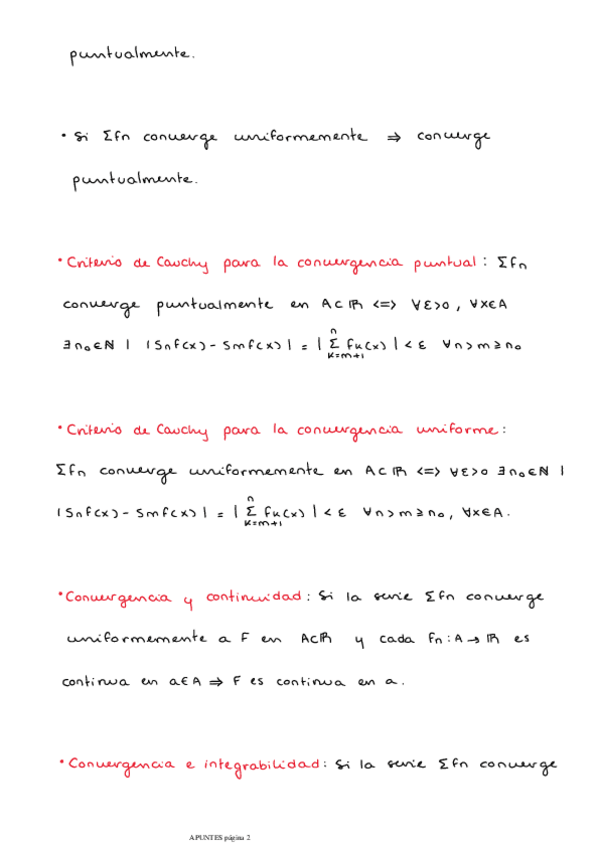 puntualmente.
• Si Σfn converge uniformemente ⇒ converge
puntualmente.
• Criterio de Cauchy para la convergencia puntual: Σfn
converge puntualmente en A⊂ℝ <=> ∀ε>0, ∀x∈A
∃n₀∈ℕ | |Snf(x) - Smf(x)| = |Σₖ₌ₘ₊₁ⁿ fk(x)| < ε ∀n>m≥n₀
• Criterio de Cauchy para la convergencia uniforme:
Σfn converge uniformemente en A⊂ℝ <=> ∀ε>0 ∃n₀∈ℕ |
|Snf(x) - Smf(x)| = |Σₖ₌ₘ₊₁ⁿ fk(x)| < ε ∀n>m≥n₀, ∀x∈A.
• Convergencia y continuidad: Si la serie Σfn converge
uniformemente a F en A⊂ℝ y cada fn: A→ℝ es
continua en a∈A ⇒ F es continua en a.
• Convergencia e integrabilidad: Si la serie Σfn converge
APUNTES página 2